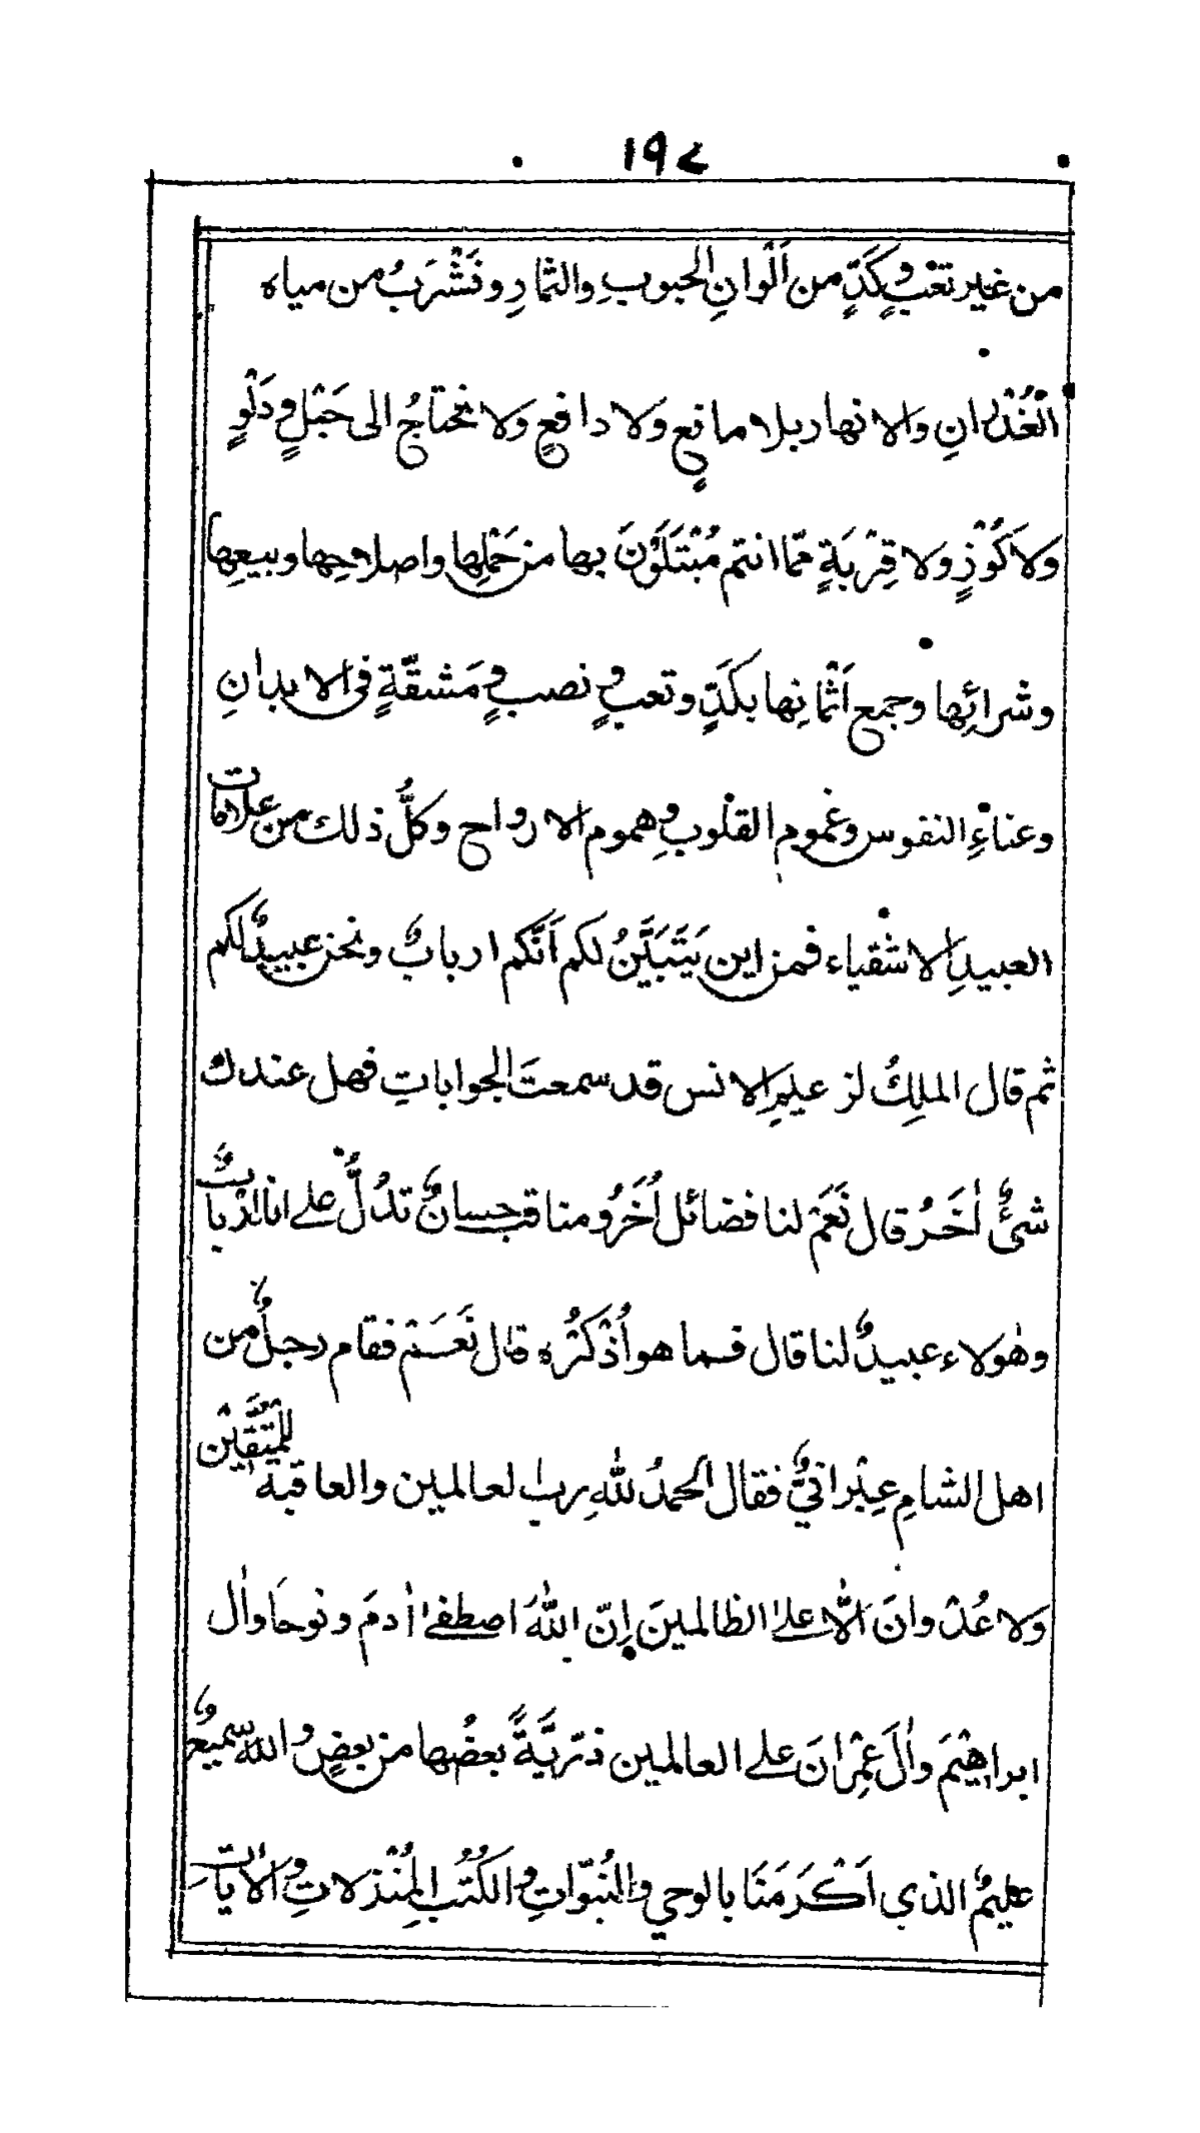 ١٩٧
من غير تعبٍ وكَدٍّ من اَلْوانِ الحبوبِ والثمارِ ونَشْرَبُ من مياه
الْغُدْرانِ والانهار بلا مانعٍ ولا دافعٍ ولا نحتاجُ الى حَبْلٍ ودَلْوٍ
ولا كُوْزٍ ولا قِرْبَةٍ ممّا انتم مُبْتَلَوْنَ بها من حَمْلِها واصلاحِها وبيعِها
وشرائِها وجمع اَثْمانِها بكَدٍّ وتعبٍ ونصبٍ ومَشقّةٍ فى الابدانِ
وعناءِ النفوس وغموم القلوبِ وهموم الارواح وكلُّ ذلك من علامات
العبيدِ الاشقياء فمن اين يَتَبَيَّنُ لكم اَنَّكم اربابٌ ونحن عبيدٌ لكم
ثم قال الملِكُ لزعليمِ الانس قد سمعتَ الجواباتِ فهل عندك
شئٌ اٰخَرُ قال نَعَمْ لنا فضائل اُخَرُ ومناقب حسانٌ تدُلُّ على انا اربابٌ
وهٰولاء عبيدٌ لنا قال فما هو اُذْكُرْه قال نَعَمْ فقام رجلٌ من
اهل الشامِ عِبْرانيٌّ فقال اَلحمدُ للّٰهِ ربِ العالمين والعاقبة للمُتَّقِيْن
ولا عُدْوانَ اِلّا على الظالمينَ اِنّ اللّٰهَ اصطفىٰ اٰدمَ ونوحًا واٰل
ابراهيْمَ واٰلَ عِمْرانَ على العالمين ذرّيَّةً بعضُها من بعضٍ والله سميعٌ
عليمٌ الذي اَكْرَمَنَا بالوحي والنُبوّاتِ والكُتُبِ المُنْزلاتِ والاٰيات